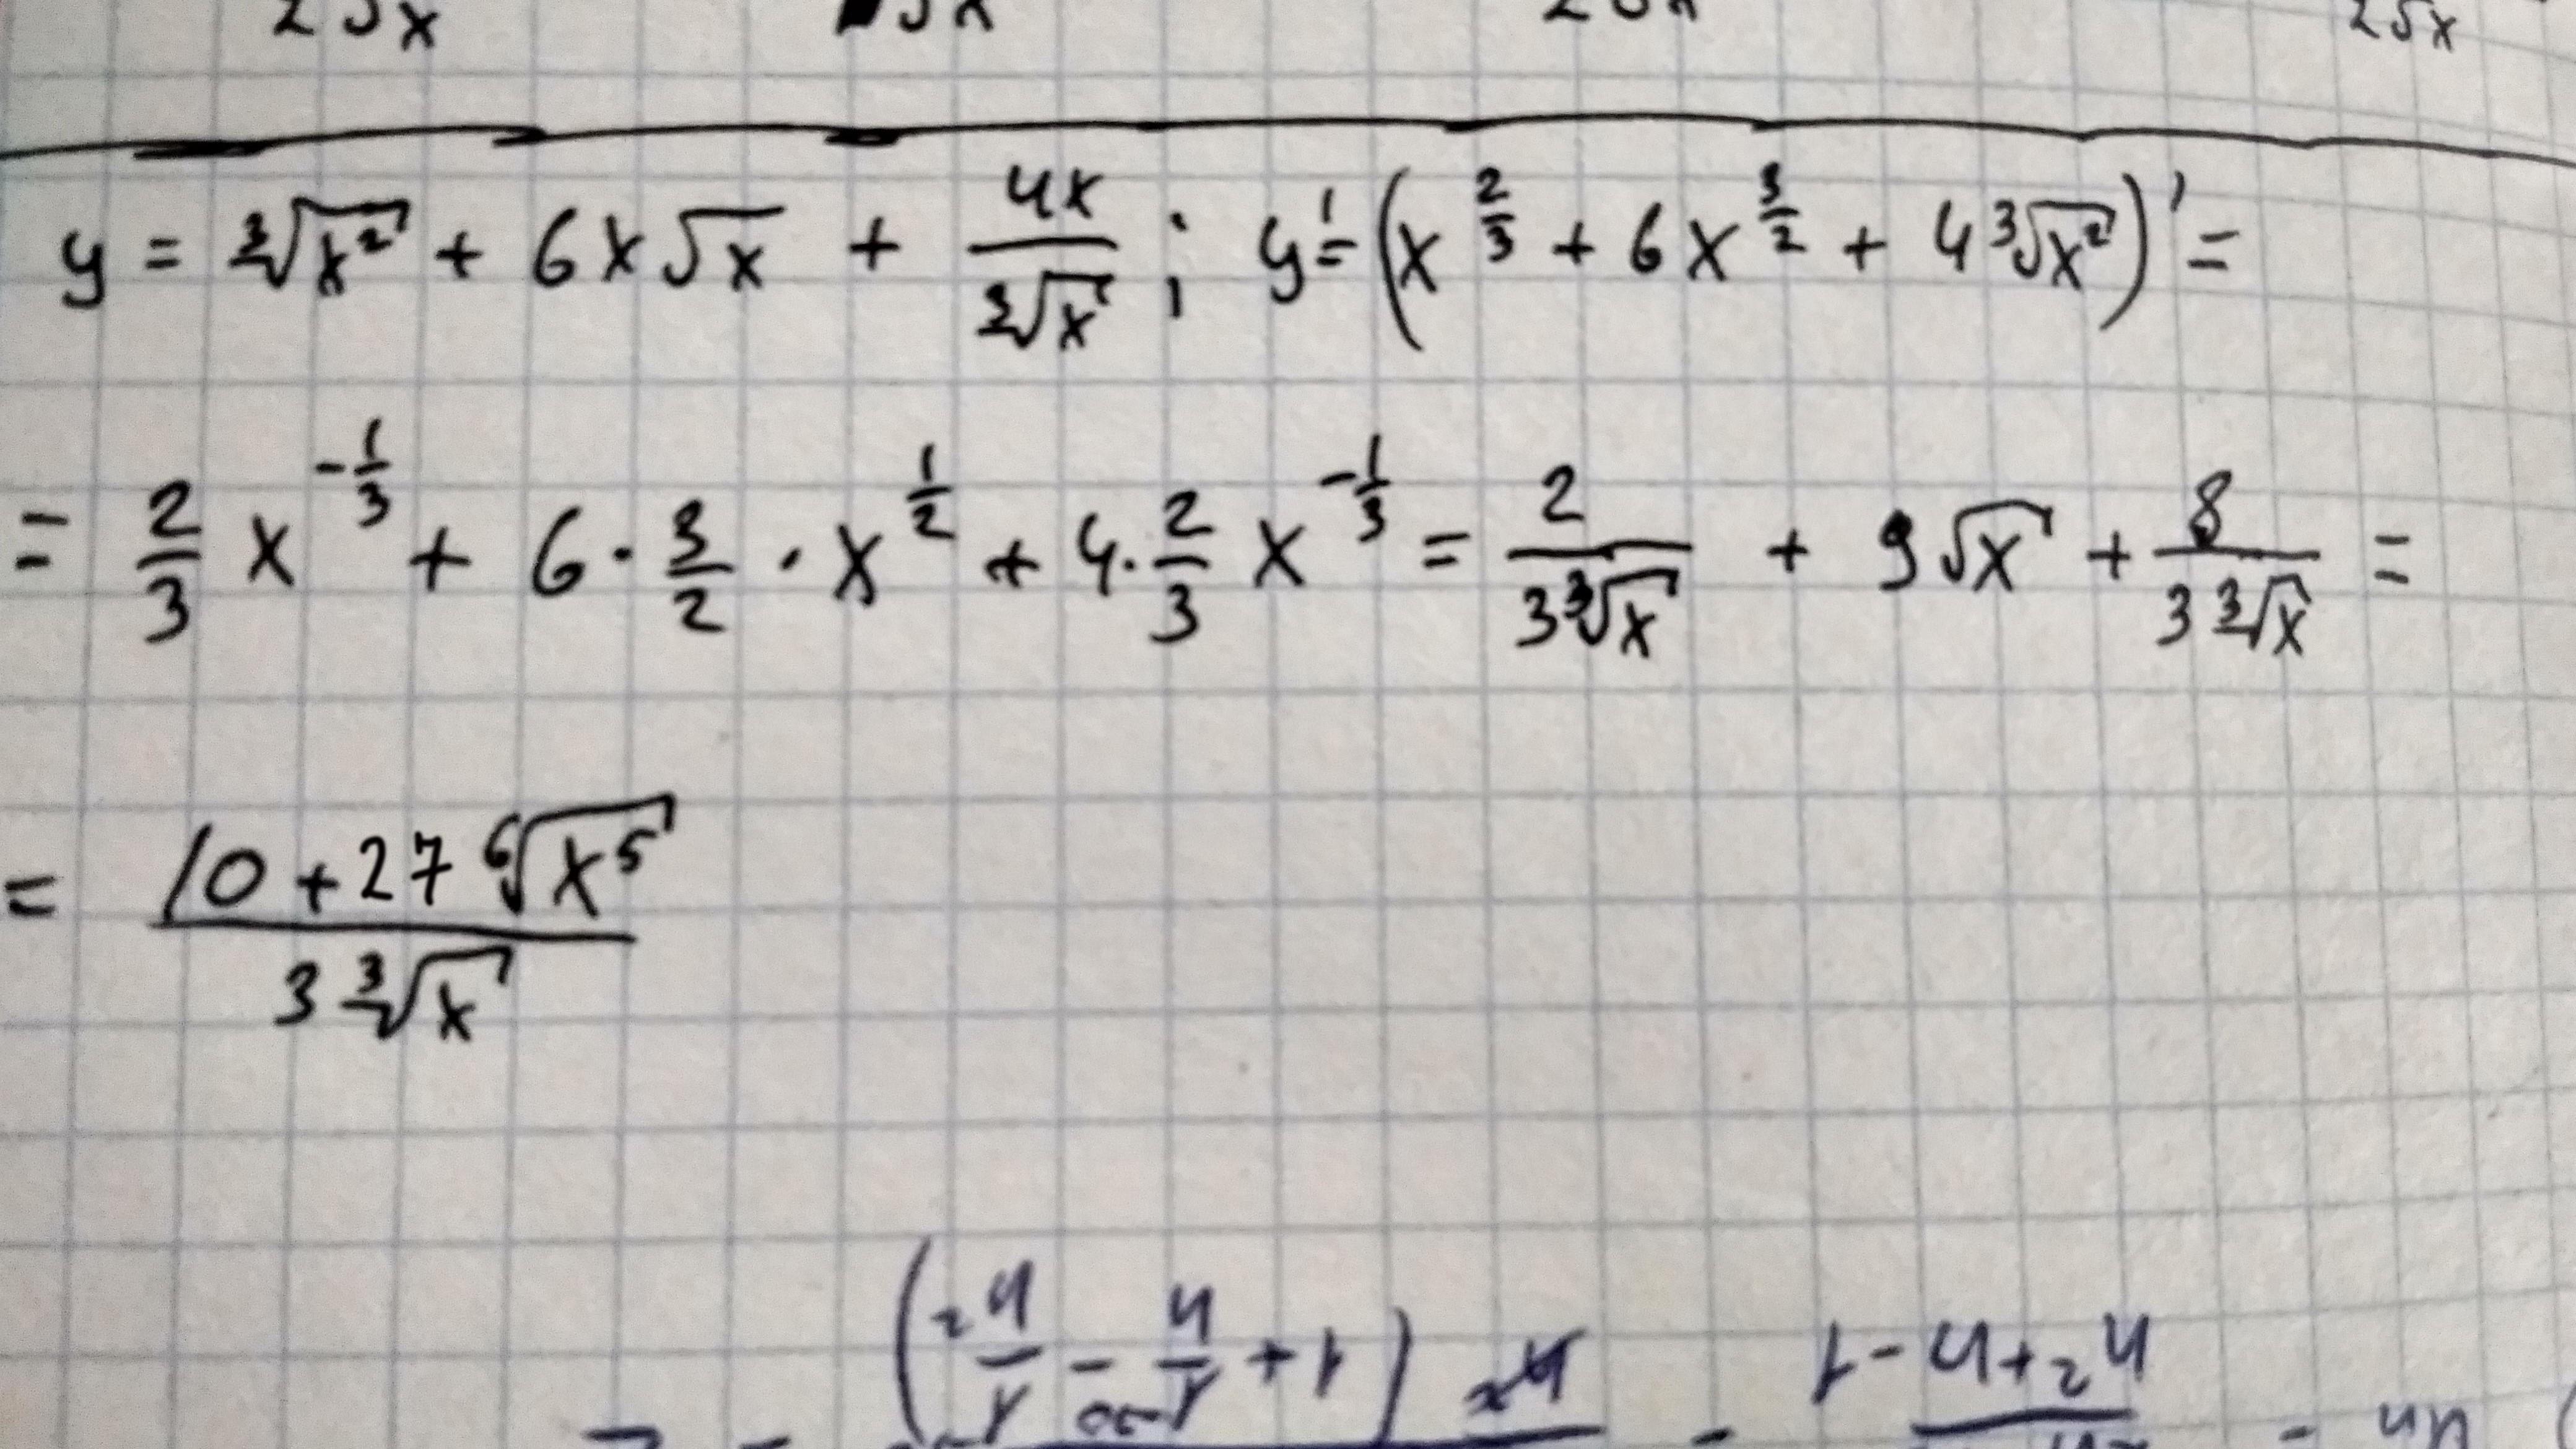 2√x 2√x
y = ∛(x²) + 6x√x + 4x/∛x ; y' = (x^(2/3) + 6x^(3/2) + 4∛(x²))' =
= 2/3 x^(-1/3) + 6 · 3/2 · x^(1/2) + 4 · 2/3 x^(-1/3) = 2/(3∛x) + 9√x + 8/(3∛x) =
= (10 + 27 ⁶√(x⁵))/(3∛x)